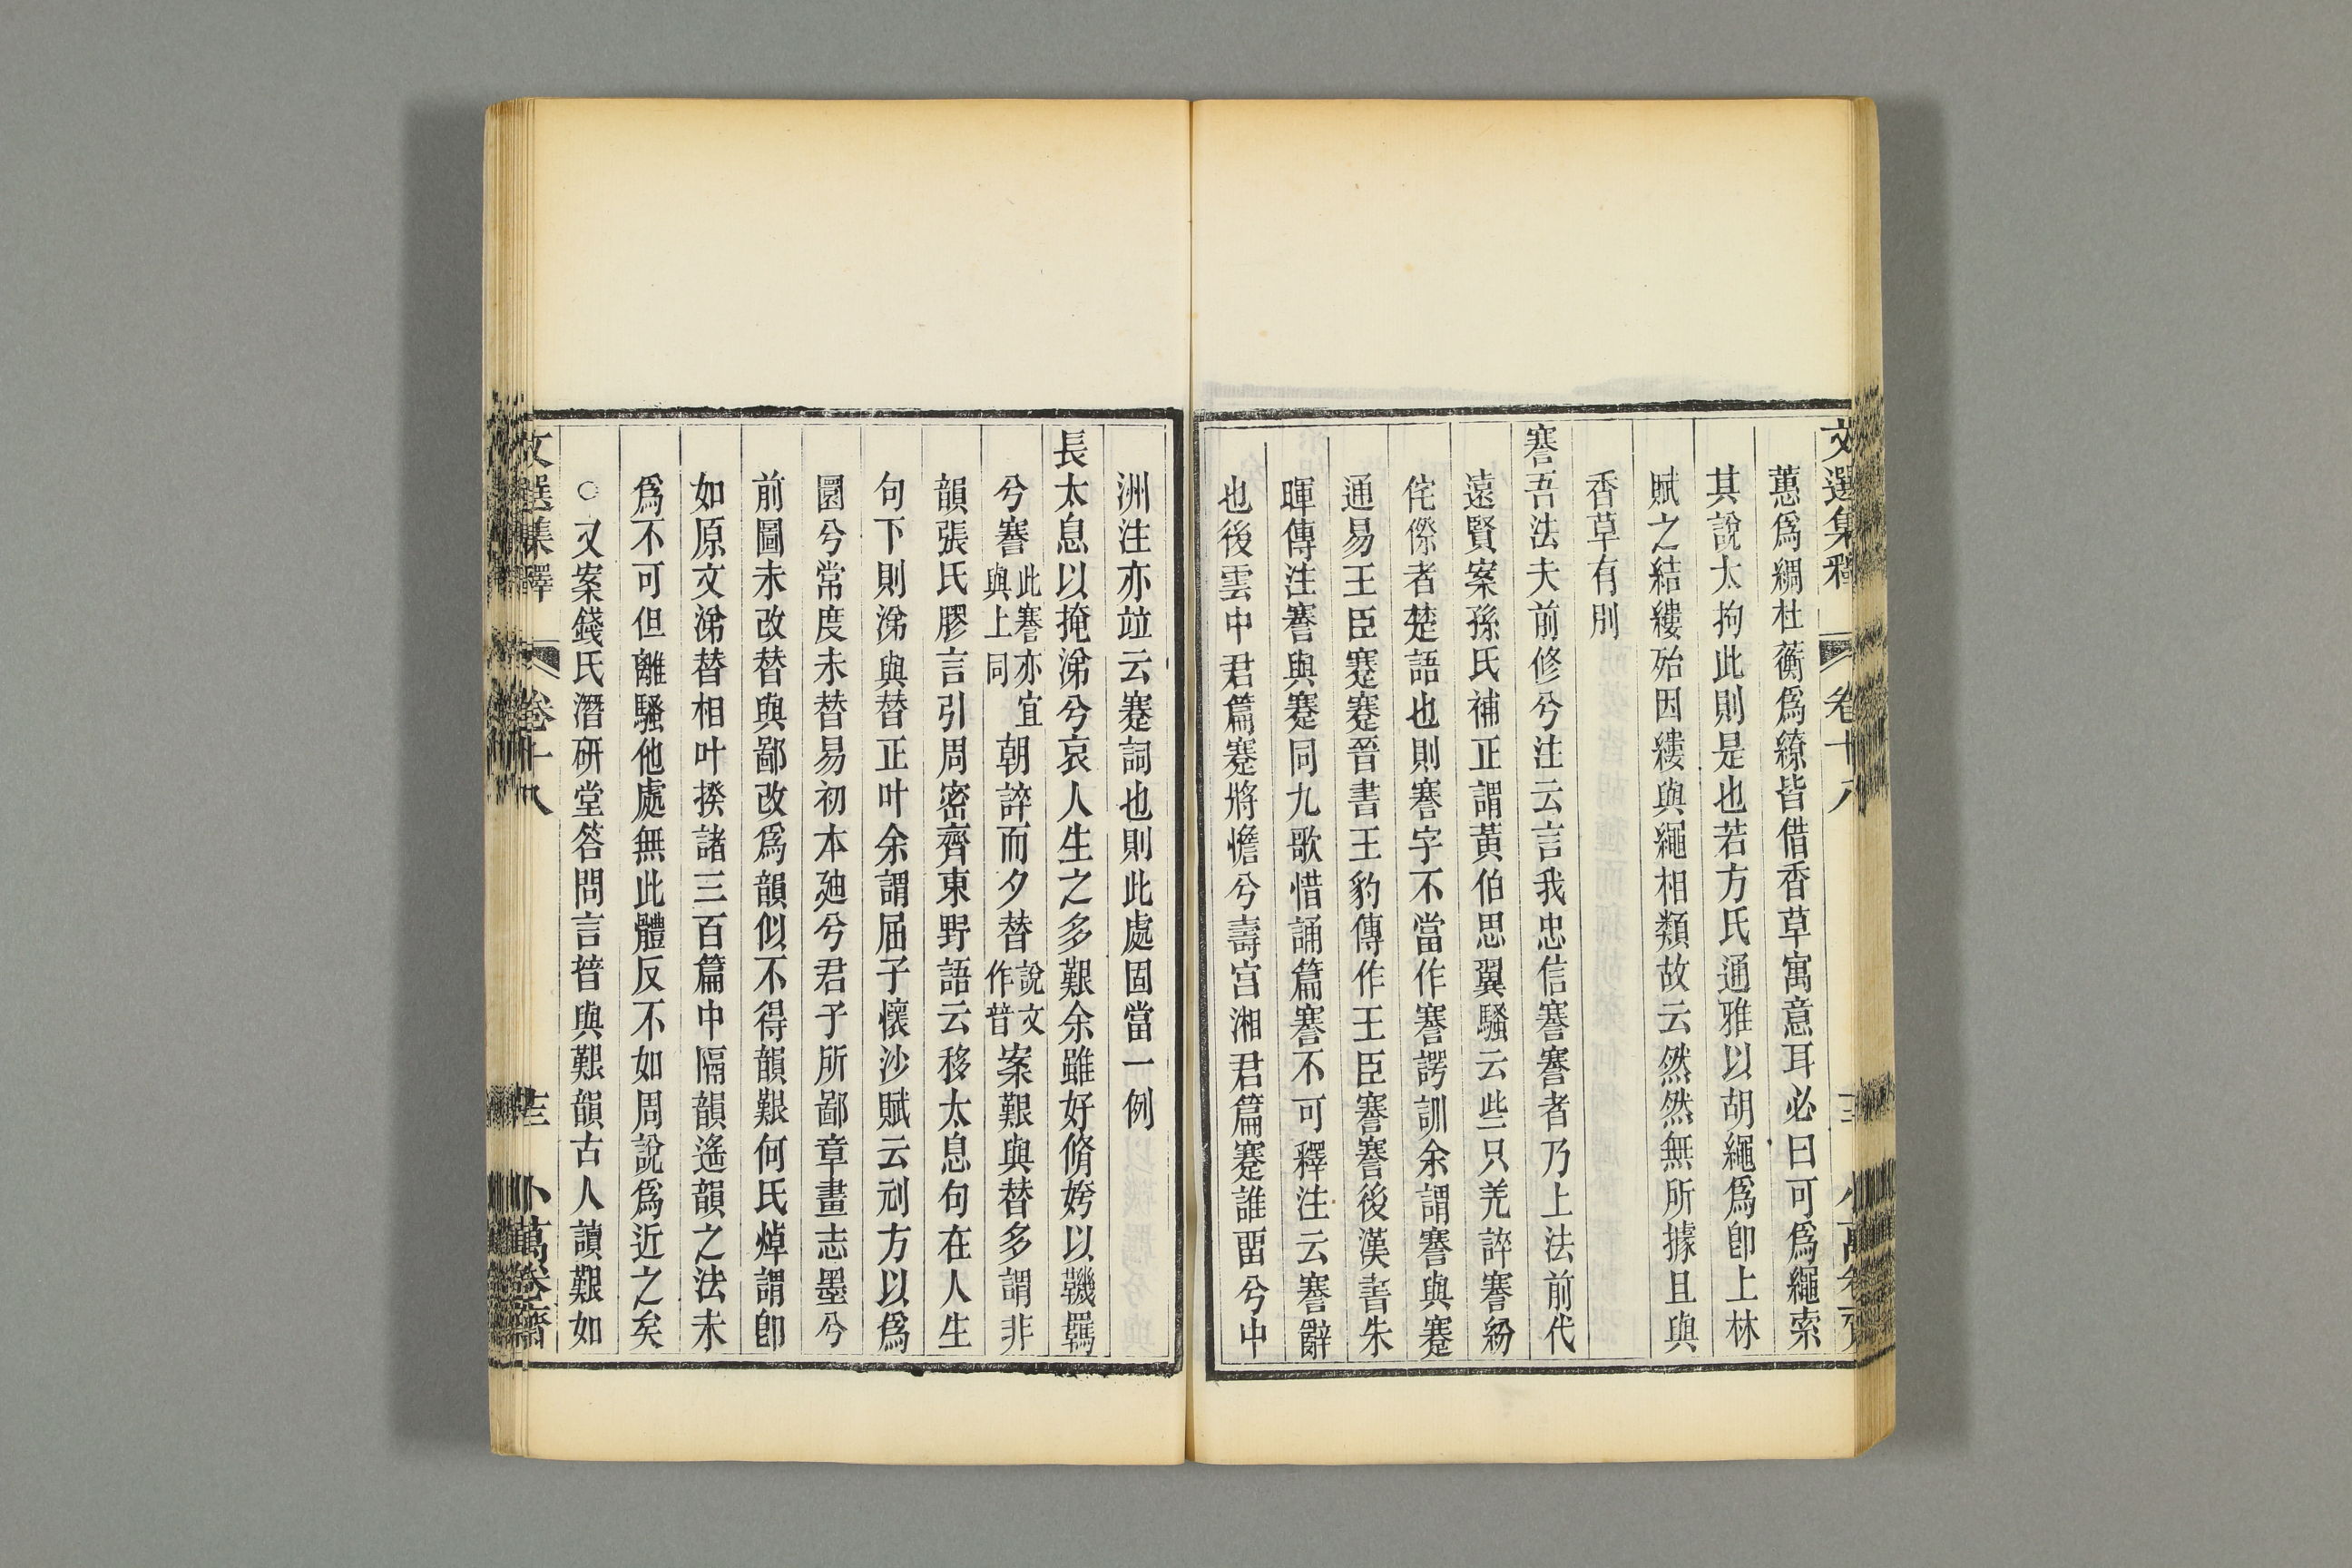 文選集釋 卷十八
蕙爲綢杜蘅爲繚皆借香草寓意耳必曰可爲繩索
其說太拘此則是也若方氏通雅以胡繩爲卽上林
賦之結縷殆因縷與繩相類故云然然無所據且與
香草有別
謇吾法夫前修兮注云言我忠信謇謇者乃上法前代
遠賢案孫氏補正謂黃伯思翼騷云些只羌誶謇紛
侘傺者楚語也則謇字不當作謇諤訓余謂謇與蹇
通易王臣蹇蹇晉書王豹傳作王臣謇謇後漢書朱
暉傳注謇與蹇同九歌惜誦篇謇不可釋注云謇辭
也後雲中君篇蹇將憺兮壽宮湘君篇蹇誰畱兮中
洲注亦竝云蹇詞也則此處固當一例
長太息以掩涕兮哀人生之多艱余雖好脩姱以鞿羈
兮謇此謇亦宜與上同朝誶而夕替說文作暜案艱與替多謂非
韻張氏膠言引周密齊東野語云移太息句在人生
句下則涕與替正叶余謂屈子懷沙賦云刓方以爲
圜兮常度未替易初本廸兮君子所鄙章畫志墨兮
前圖未改替與鄙改爲韻似不得韻艱何氏焯謂卽
如原文涕替相叶揆諸三百篇中隔韻遙韻之法未
爲不可但離騷他處無此體反不如周說爲近之矣
○又案錢氏潛研堂答問言暜與艱韻古人讀艱如
文選集釋 卷十八 小萬卷齋